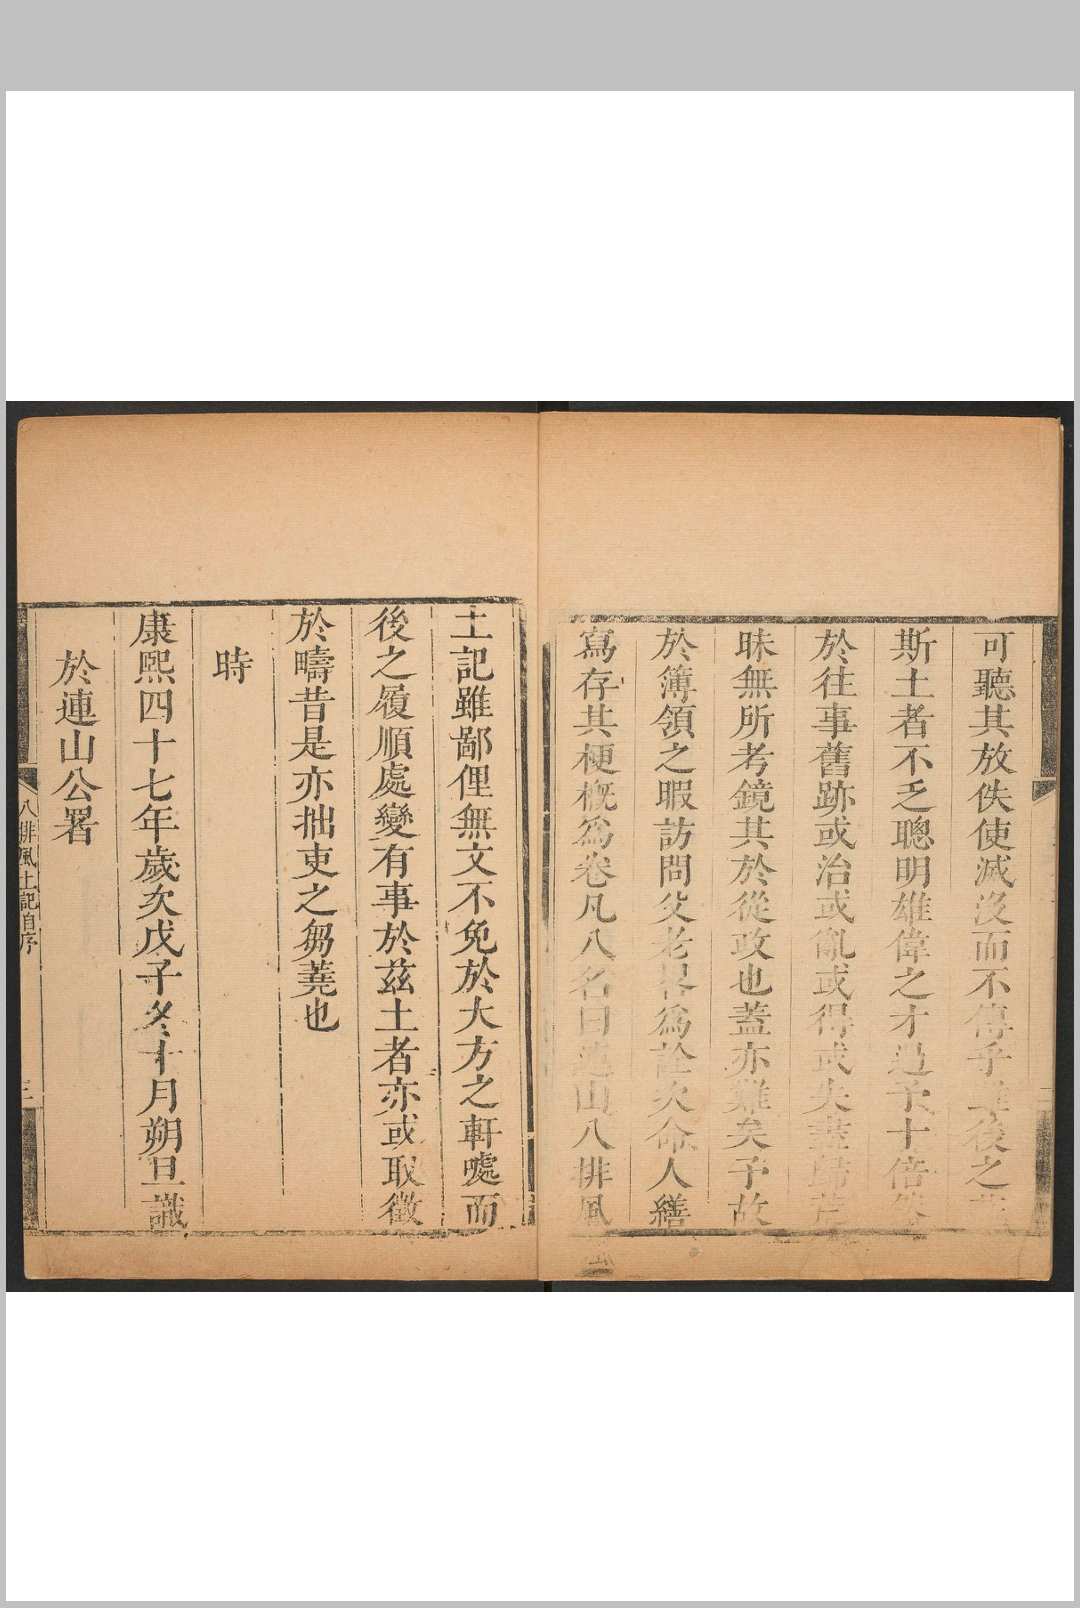 可聽其放佚使滅沒而不傳乎後之
斯土者不乏聰明雄偉之才過予十倍
於往事舊跡或治或亂或得或失盡歸
昧無所考鏡其於從政也蓋亦難矣予故
於簿領之暇訪問父老畧為詮次命人繕
寫存其梗概為卷凡八名曰連山八排風
土記雖鄙俚無文不免於大方之軒噓而
後之履順處變有事於茲土者亦或取徵
於疇昔是亦拙吏之芻蕘也
時
康熙四十七年歲次戊子冬十月朔旦識
於連山公署
八排風土記自序
三